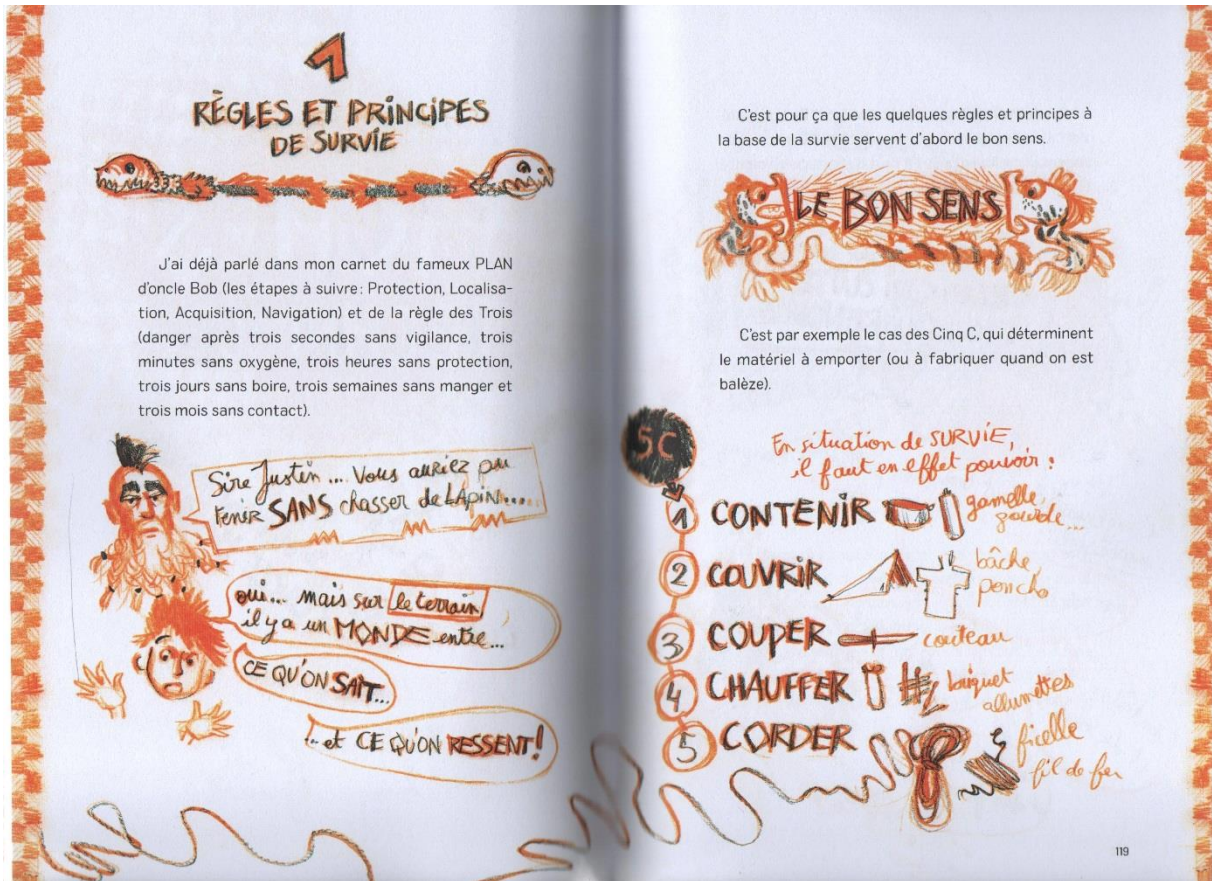 1
RÈGLES ET PRINCIPES
DE SURVIE
J'ai déjà parlé dans mon carnet du fameux PLAN
d'oncle Bob (les étapes à suivre : Protection, Localisa-
tion, Acquisition, Navigation) et de la règle des Trois
(danger après trois secondes sans vigilance, trois
minutes sans oxygène, trois heures sans protection,
trois jours sans boire, trois semaines sans manger et
trois mois sans contact).
Sire Justin .... Vous auriez pu
tenir SANS chasser de LAPIN.....
oui... mais sur le terrain
il y a un MONDE entre...
CE QU'ON SAIT...
... et CE QU'ON RESSENT!
C'est pour ça que les quelques règles et principes à
la base de la survie servent d'abord le bon sens.
LE BON SENS
C'est par exemple le cas des Cinq C, qui déterminent
le matériel à emporter (ou à fabriquer quand on est
balèze).
5C
En situation de SURVIE,
il faut en effet pouvoir :
1 CONTENIR gamelle, gourde...
2 COUVRIR bâche, poncho
3 COUPER couteau
4 CHAUFFER briquet allumettes
5 CORDER ficelle fil de fer
119